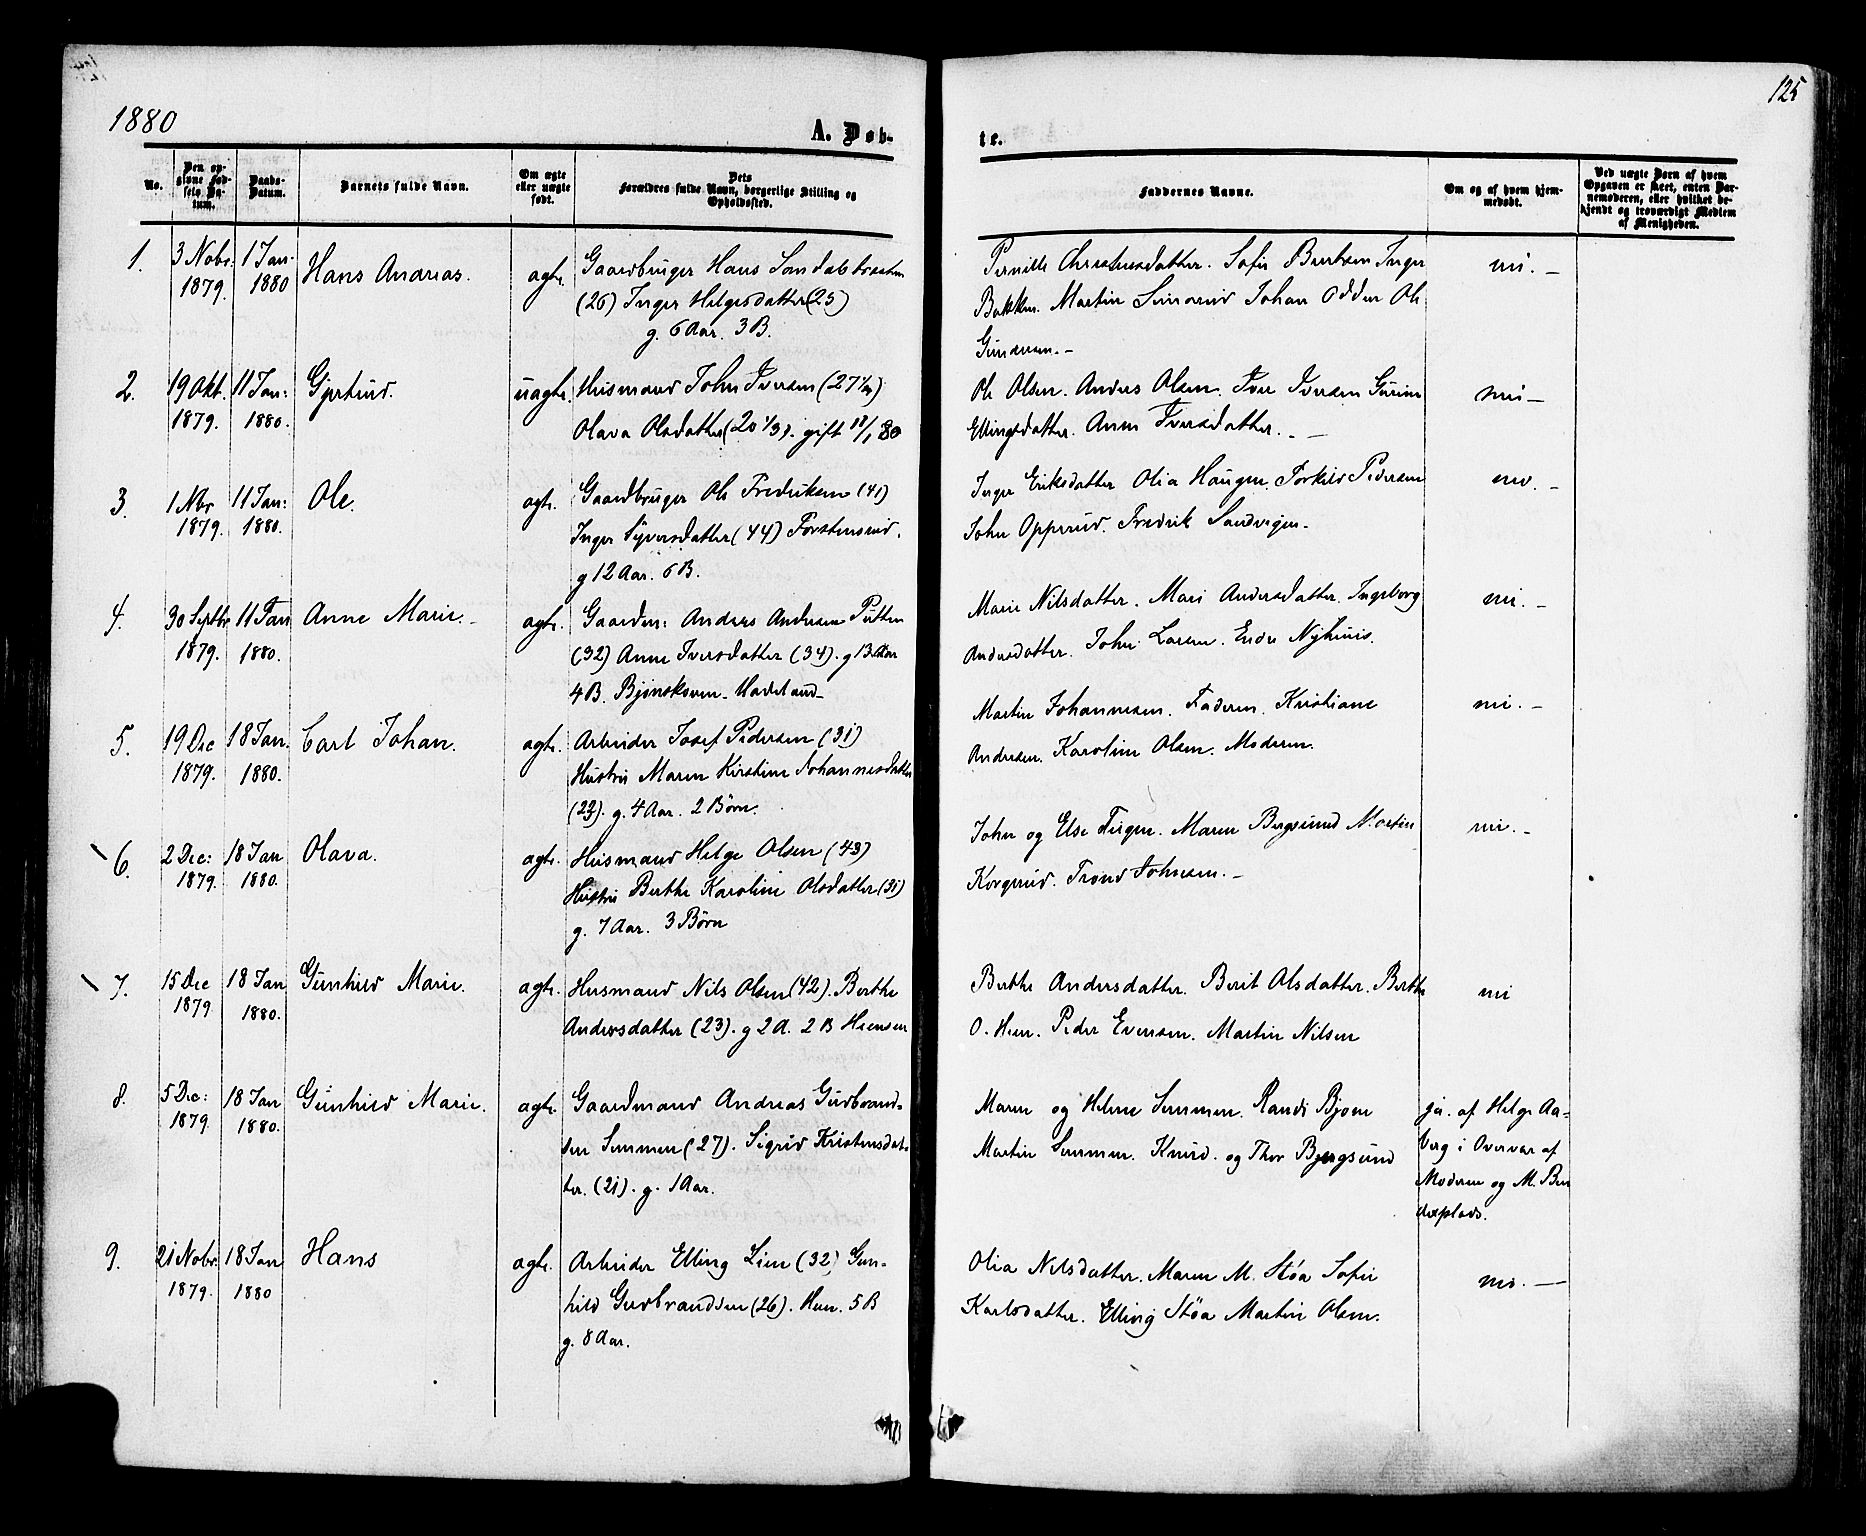 125
1880
A. Døb-
te.
No.
Den op-
givne Fød-
sels Da-
tum.
Daabs-
Datum.
Barnets fulde Navn.
Om ægte
eller uægte
født.
Dets
Forældres fulde Navn, borgerlige Stilling og
Opholdssted.
Faddernes Navne.
Om og af hvem hjem-
medøbt.
Ved uægte Børn af hvem
Opgaven er skeet, enten Bar-
nemoderen, eller hvilket be-
kjendt og troværdigt Medlem
af Menigheden.
1.
3 Nobr.
1879.
1 Jan.
1880
Hans Andreas.
ægte.
Gaardbruger Hans
(26) Inger Helgesdatter (25)
g. 6 Aar. 3 B.
Pernille Sofie Inger
Bakken. Martin Johan Odden Ole
Gundersen.-
nei.-
2.
19 Okt.
1879.
11 Jan:
1880.
Gjertrud.
uægte.
Husmand John Iversen (27 1/2)
Olava Olsdatter (20 1/3). gift 18/1 80
Ole Olsen. Anders Olsen. Iver Iversen
Ellingsdatter. Anne Iversdatter.-
nei-
3.
1 Nbr
1879.
11 Jan:
1880.
Ole.
ægte.
Gaardbruger Ole Fredriksen (41)
Inger Syversdatter (44) Torstensrud.
g 12 Aar. 6 B.
Inger Eriksdatter Olia Haugen. Torkild Pedersen
John Opperud. Fredrik Sandvigen.
nei.-
4.
30 Septbr
1879.
11 Jan
1880.
Anne Marie.-
ægte.
Gaardm: Anders Andersen Putten
(32) Anne Iversdatter (34). g 13 Aar
4 B. Hadeland-
Marie Nilsdatter. Mari Andersdatter. Ingeborg
Andersdatter. John Larsen. Endre Nyhuus.
nei.-
5.
19 Dec
1879.
18 Jan.
1880.
Carl Johan.
ægte.
Arbeider Josef Pedersen (31)
Hustru Maren Kirstine Johannesdatter
(23). g. 4 Aar. 2 Børn.
Martin Johannesen. Faderen. Kristiane
Andersen. Karoline Olsen. Moderen.
nei.-
6.
2 Dec:
1879.
18 Jan
1880.
Olava.
ægte.
Husmand Helge Olsen (43)
Hustru Berthe Karoline Olsdatter (31)
g. 7 Aar. 3 Børn
John og Else Maren Bergsund Martin
Korgerud. Trond Johnsen.-
nei.-
7.
15 Dec
1879
18 Jan
1880.
Gunhild Marie.
ægte.
Husmand Nils Olsen (42). Berthe
Andersdatter (23). g 2 A. 2 B
Berthe Andersdatter. Berit Olsdatter. Berthe
O. Hem. Peder Evensen. Martin Nilsen
nei
8.
5 Dec:
1879.
18 Jan
1880.
Gunhild Marie.
ægte.
Gaardmand Andreas Gudbrand-
sen Semmen (27). Sigrid Kristensdat-
ter. (21). g. 1 Aar.
Maren og Helene Semmen. Randi Bjone
Martin Semmen. Knud. og Thor Bjergsund
ja. af Helge Aa-
berg i Overvær af
Moderen og M. Ben
dixplads.
9.
21 Nobr.
1879.
18 Jan
1880
Hans
ægte.
Arbeider Elling Lien (32) Gun-
hild Gudbrandsen (26). Hem. 5 B
g. 8 Aar.
Olia Nilsdatter. Maren M. Støa Sofie
Karlsdatter. Elling Støa Martin Olsen.
nei.-